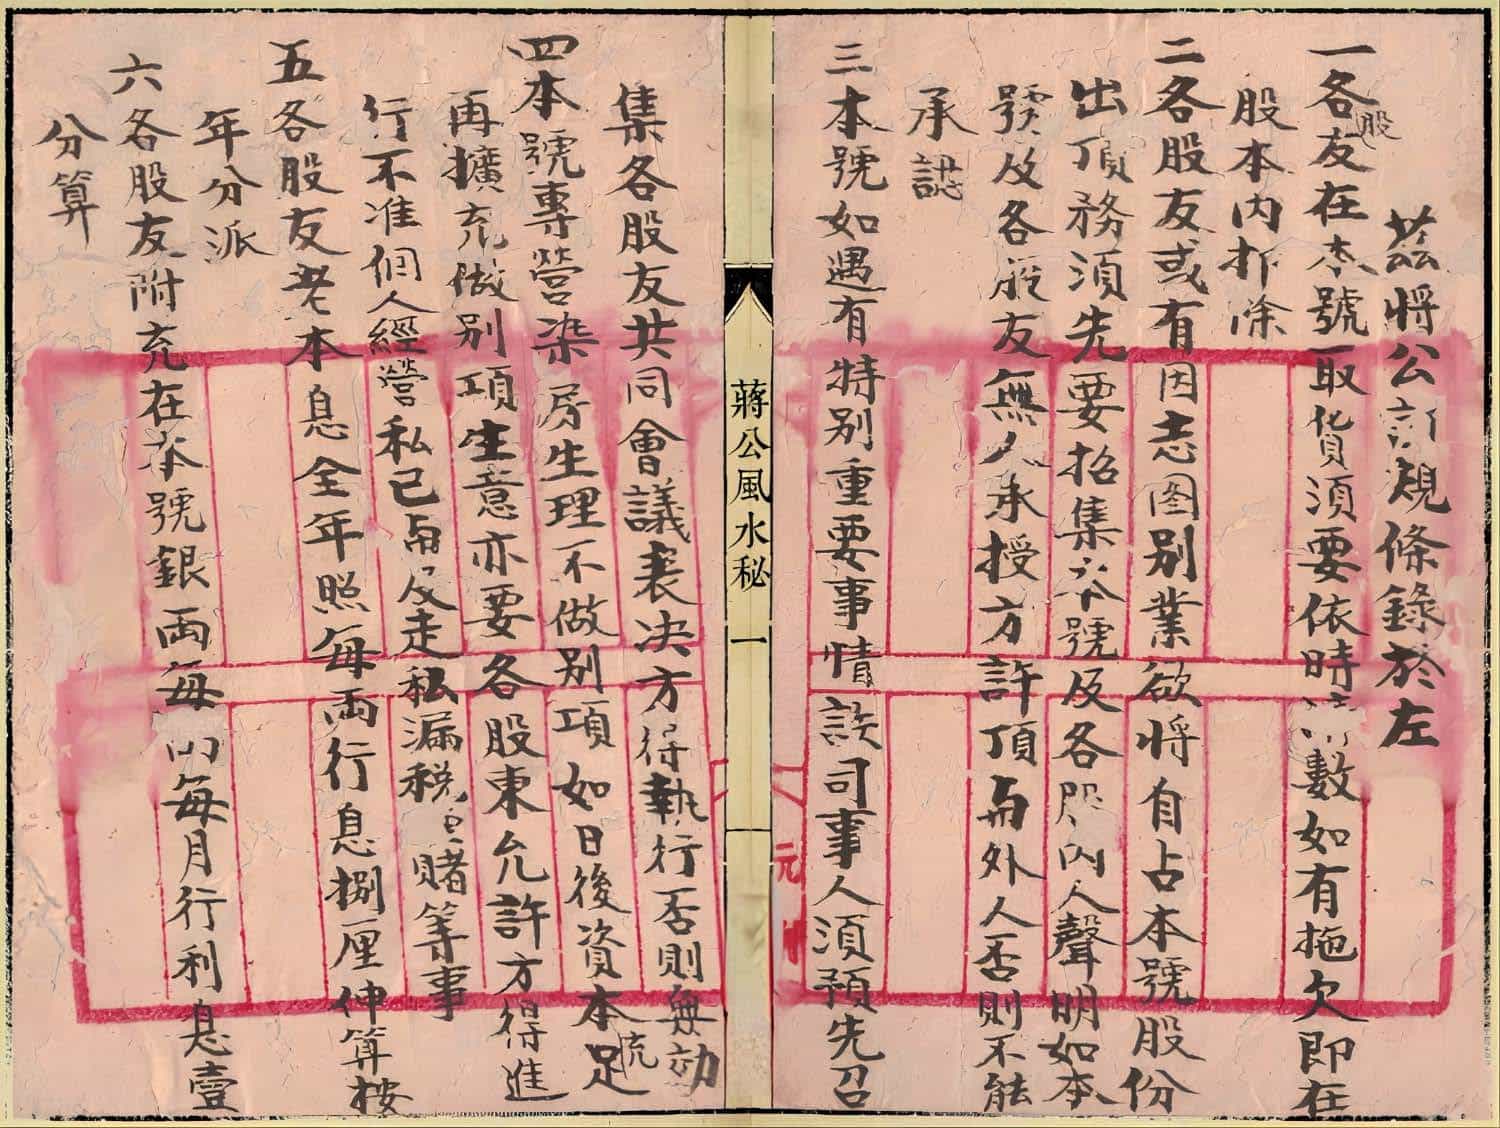 茲將公訂規條錄於左
一各股友在本號取貨須要依時清數如有拖欠即在
股本內扣除
二各股友或有因志图別業欲将自占本號股份
出頂務須先要招集本號及各股內人聲明如本
號及各股友無人承授方許頂而外人否則不能
承認
三本號如遇有特別重要事情該司事人須預先召
集各股友共同會議表决方得執行否則無効
四本號專營染房生理不做別項如日後資本充足
再擴充做別項生意亦要各股東允許方得進
行不准個人經營私己有及走私漏稅賭等事
五各股友老本息全年照每両行息捌厘伸算按
年分派
六各股友附充在本號銀両每両每月行利息壹
分算
蔣公風水秘
一
元